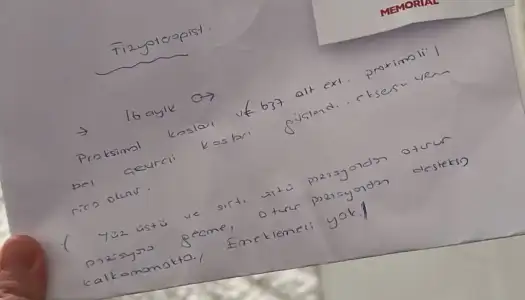 MEMORIAL
Fizyoterapist.
→ 16 aylık ♂
Proksimal kasları ve b37 alt ext. proximali /
bel çevresi kasları güçlend. egzersiz
rica olunur.
( Yüz üstü ve sırt üstü pozisyondan oturur
pozisyona geçme, oturur pozisyondan desteksiz
kalkamamakta, Emeklemesi yok. )